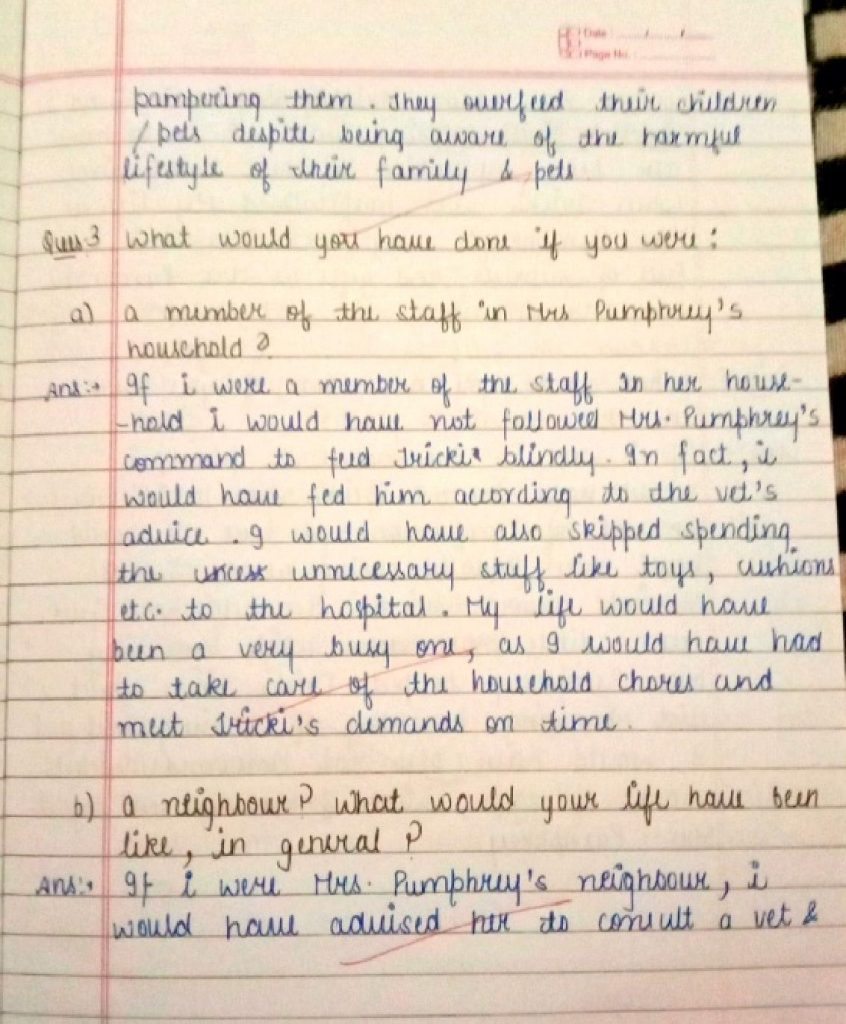 Date / /
Page No.
pampering them. They overfeed their children
/ pets despite being aware of the harmful
lifestyle of their family & pets
Ques 3 What would you have done if you were:
a) a member of the staff in Mrs Pumphrey's
household?
Ans:- If i were a member of the staff in her house-
-hold i would have not followed Mrs. Pumphrey's
command to feed Tricki blindly. In fact, i
would have fed him according to the vet's
advice. I would have also skipped spending
the uncess unnecessary stuff like toys, cushions
etc. to the hospital. My life would have
been a very busy one, as I would have had
to take care of the household chores and
meet Tricki's demands on time.
b) a neighbour? What would your life have been
like, in general?
Ans:- If i were Mrs. Pumphrey's neighbour, i
would have advised her to consult a vet &